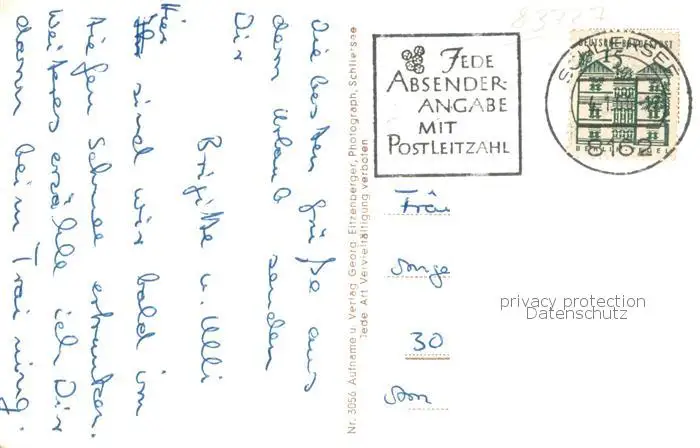 Die besten Grüße aus
dem Urlaub senden
Dir
Brigitte u. Ulli
Hier sind wir bald im
tiefen Schnee ertrunken.
Weiteres erzähle ich Dir
dann beim Training.
Nr. 3056 Aufnahme u. Verlag Georg Eitzenberger, Photograph, Schliersee
Jede Art Vervielfältigung verboten
83727
JEDE
ABSENDER-
ANGABE
MIT
POSTLEITZAHL
DEUTSCHE BUNDESPOST
15
BERLIN TEGEL
SCHLIERSEE
8162
Frau
Inge
30
privacy protection
Datenschutz